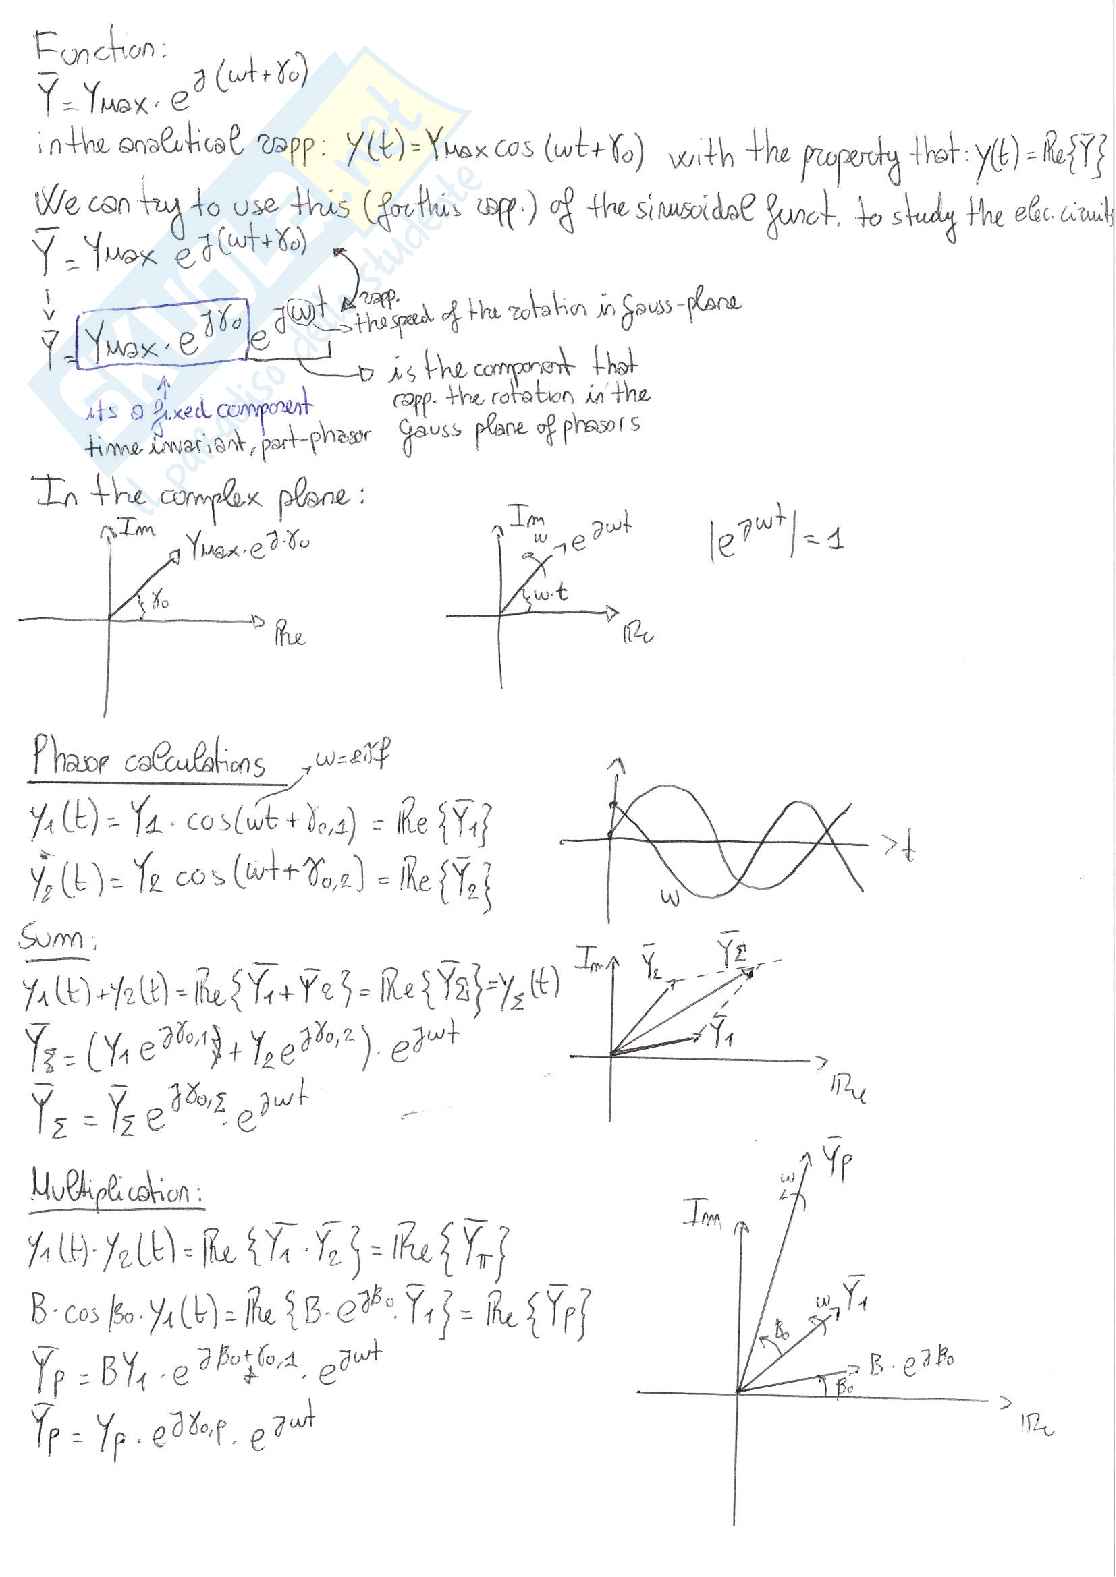 Function:
Ȳ = Yмax · e^j(ωt+γ₀)
in the analitical rapp: y(t) = Yмax cos (ωt+γ₀) with the property that: y(t) = Re{Ȳ}
We can try to use this (for this rapp.) of the sinusoidal funct. to study the elec. circuits
Ȳ = Yмax e^j(ωt+γ₀)
Ȳ = Yмax · e^jγ₀ e^jωt
rapp.
the speed of the rotation in Gauss-plane
is the component that
rapp. the rotation in the
Gauss plane of phasors
its a fixed component
time invariant, part-phasor
In the complex plane:
Im
Yмax · e^j·γ₀
γ₀
Re
Im
ω
e^jωt
ω·t
Re
|e^jωt| = 1
Phasor calculations
ω=2πf
y₁(t) = Y1 · cos(ωt + γ₀,₁) = Re{Ȳ₁}
y₂(t) = Y₂ cos(ωt + γ₀,₂) = Re{Ȳ₂}
t
ω
Sum:
y₁(t)+y₂(t) = Re{Ȳ₁+Ȳ₂} = Re{ȲΣ} = yΣ(t)
ȲΣ = (Y₁ e^jγ₀,₁ + Y₂ e^jγ₀,₂) · e^jωt
ȲΣ = ȲΣ e^jγ₀,Σ · e^jωt
Im
Ȳ₂
ȲΣ
Ȳ₁
Re
Multiplication:
y₁(t) · y₂(t) = Re{Ȳ₁ · Ȳ₂} = Re{Ȳπ}
B · cos β₀ · y₁(t) = Re{B · e^jβ₀ · Ȳ₁} = Re{Ȳp}
Ȳp = BY₁ · e^jβ₀+γ₀,₁ · e^jωt
Ȳp = Yp · e^jγ₀,p · e^jωt
Im
ω
Ȳp
ω
Ȳ₁
β₀
B · e^jβ₀
β₀
Re
SKUOLA.not
il paradiso dello studente